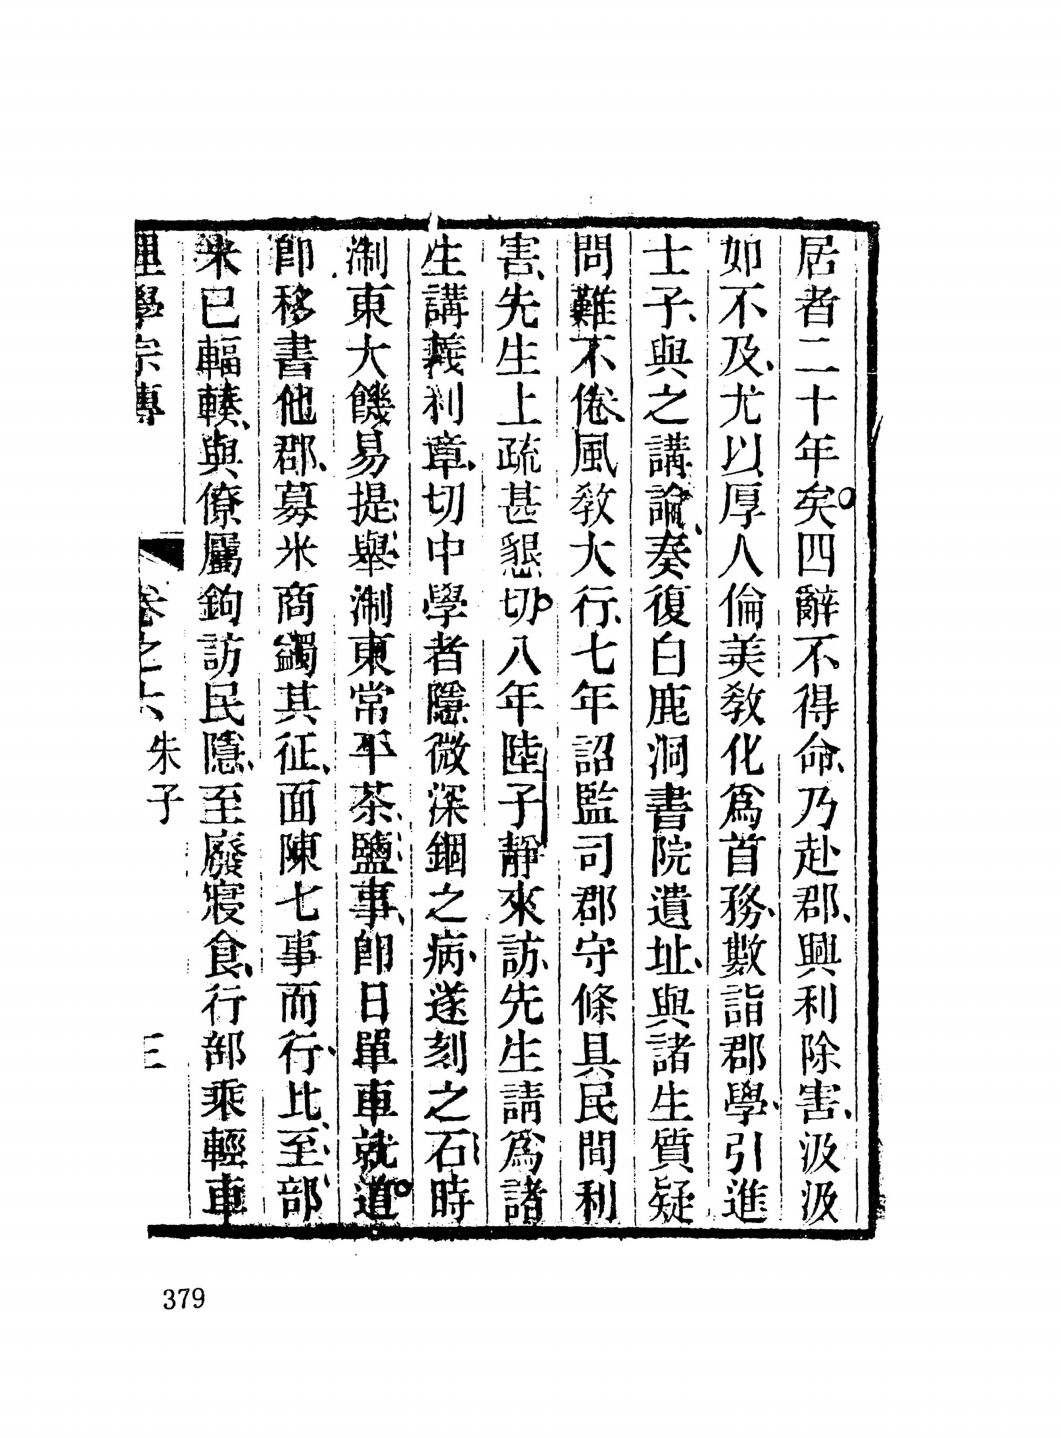 居者二十年矣。四辭不得命、乃赴郡、興利除害、汲汲
如不及、尤以厚人倫美教化爲首務、數詣郡學、引進
士子、與之講論、奏復白鹿洞書院遺址、與諸生質疑
問難不倦、風教大行、七年詔監司郡守條具民間利
害、先生上疏甚懇切。八年陸子靜來訪、先生請爲諸
生講義利章、切中學者隱微深錮之病、遂刻之石時
淛東大饑易提舉淛東常平茶鹽事、卽日單車就道。
卽移書他郡、募米商蠲其征、面陳七事而行、比至部、
米已輻輳、與僚屬鉤訪民隱、至廢寢食、行部乘輕車
理學宗傳 卷之六 朱子 三
379